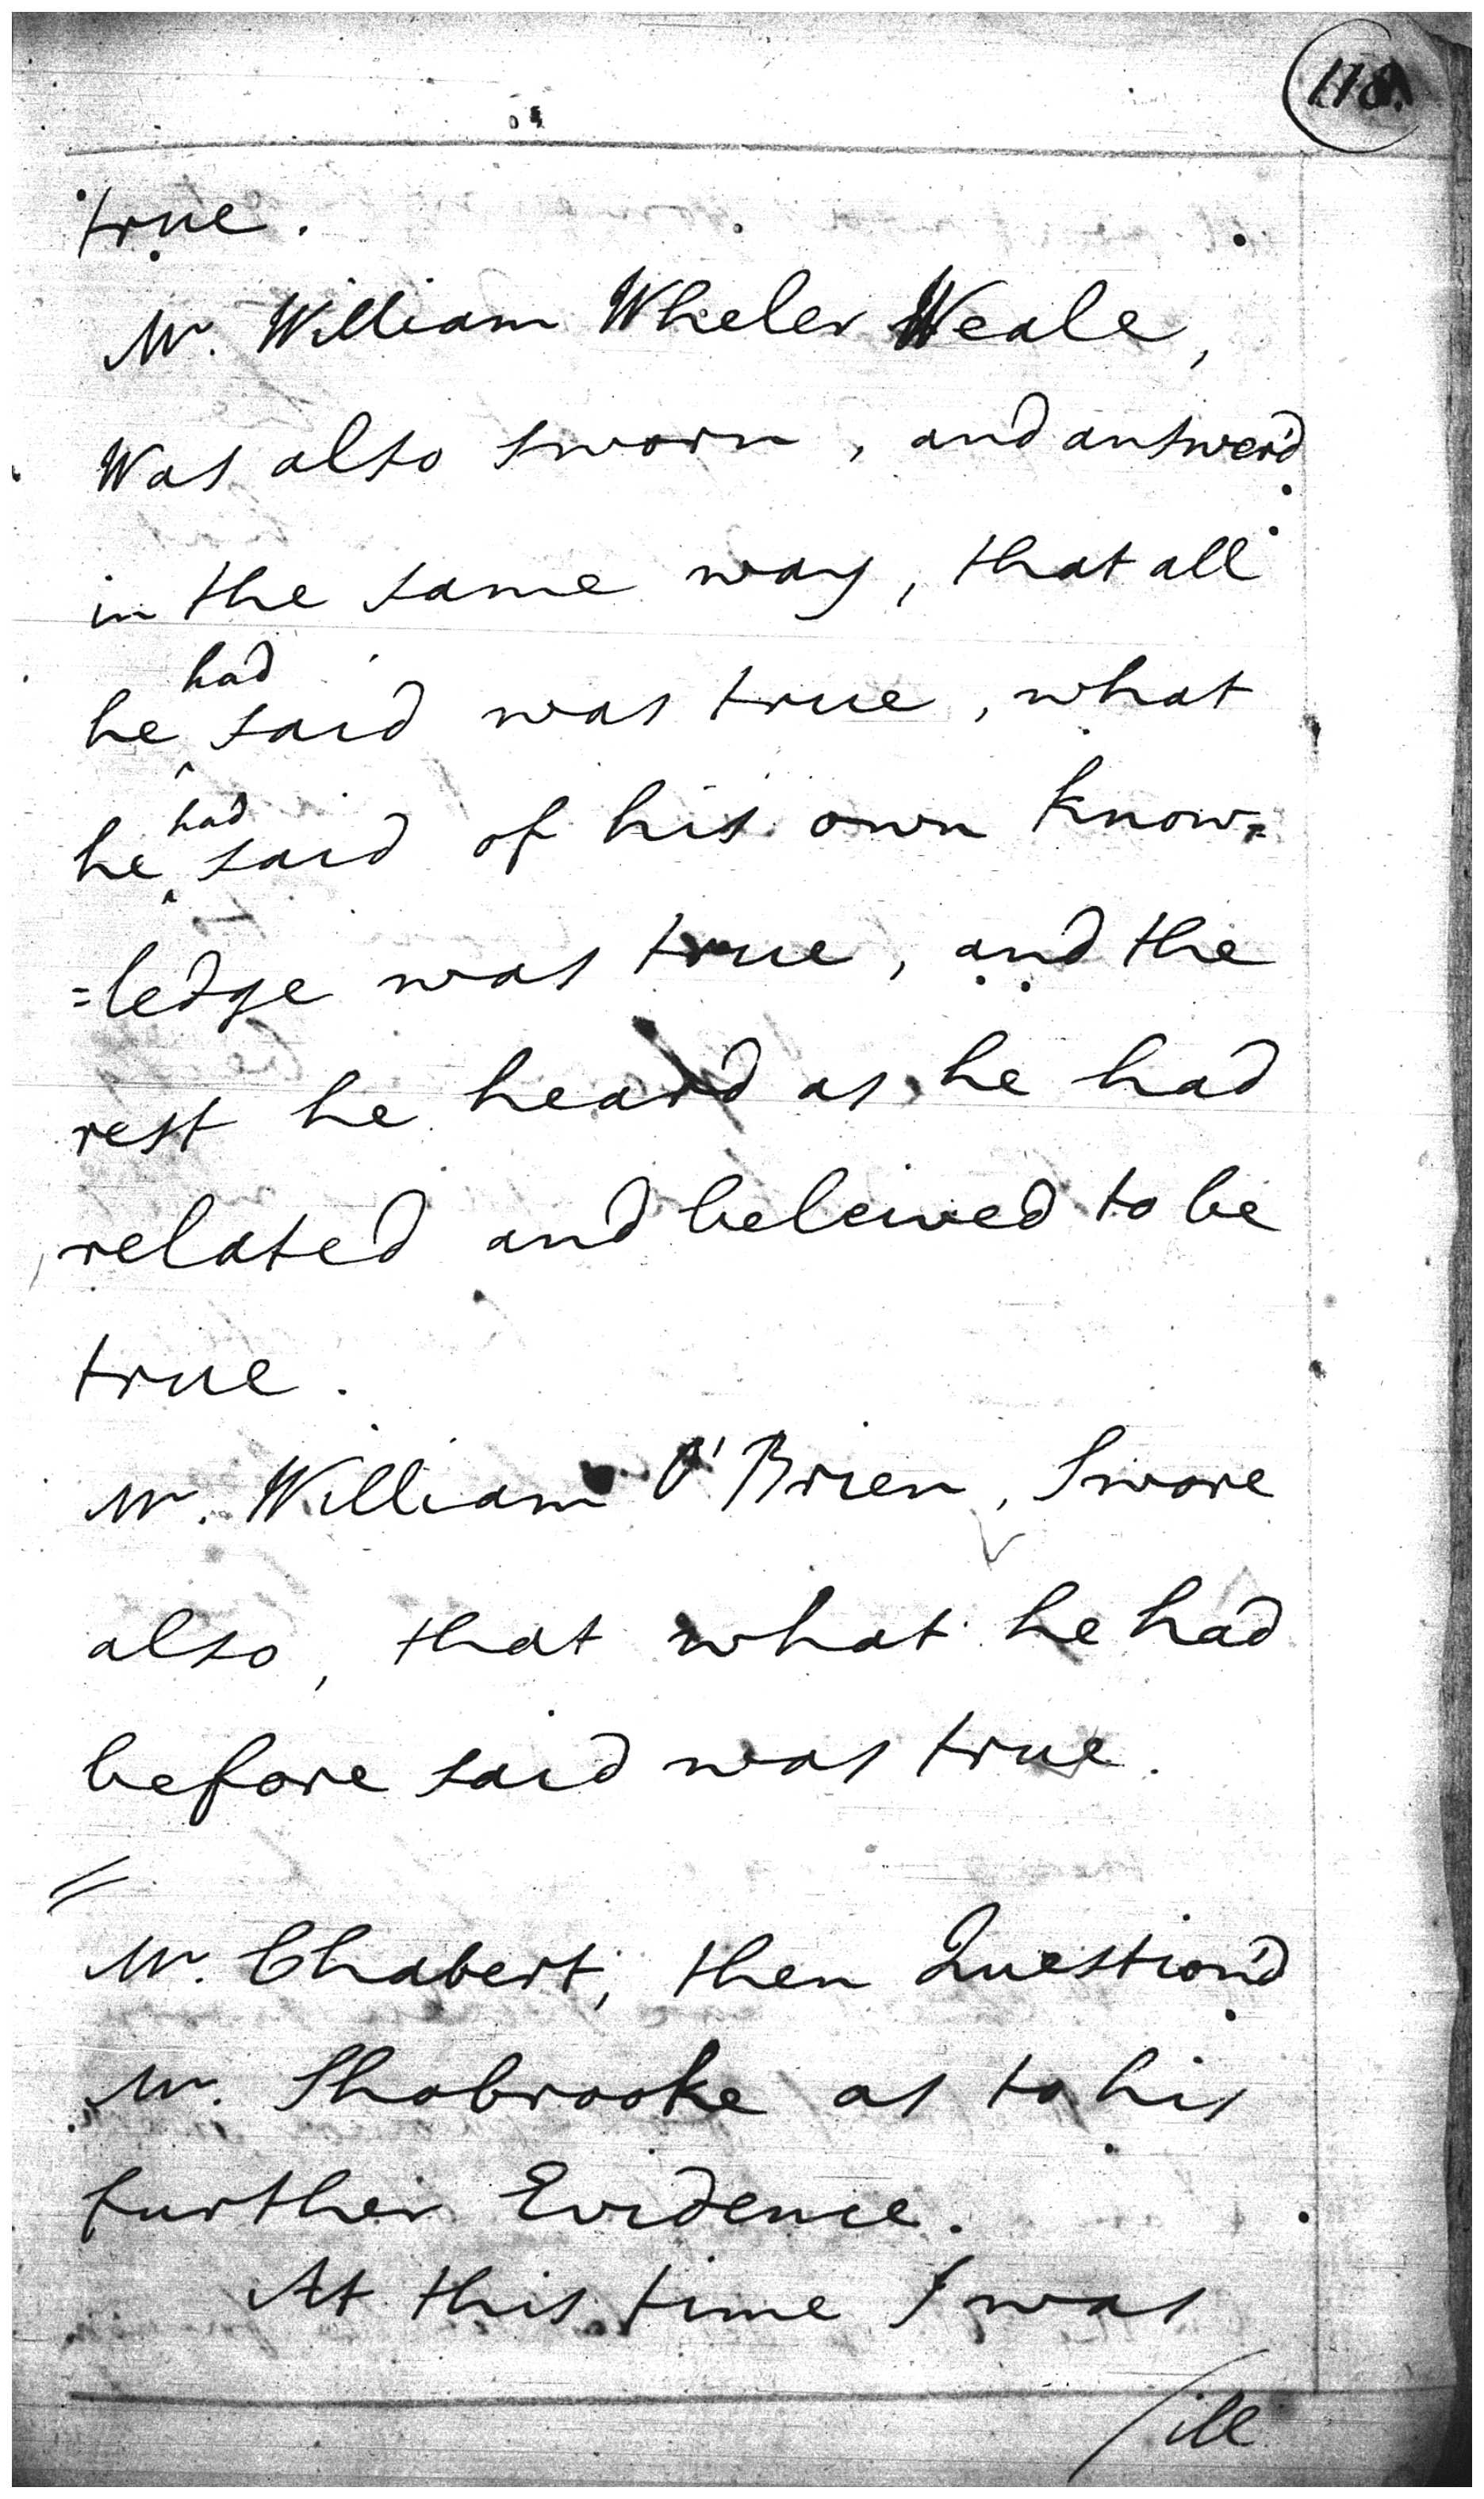 178.
true.
Mr. William Wheler Weale,
Was also sworn, and answer'd
in the same way, that all
had
he ‸ said was true, what
had
he ‸ said of his own know=
=ledge was true, and the
rest he heard as he had
related and beleived to be
true.
Mr. William O'Brien, Swore
also, that what he had
before said was true.
Mr. Chabert, then Question'd
Mr. Shobrooke as to his
further Evidence.
At this time I was
/ill